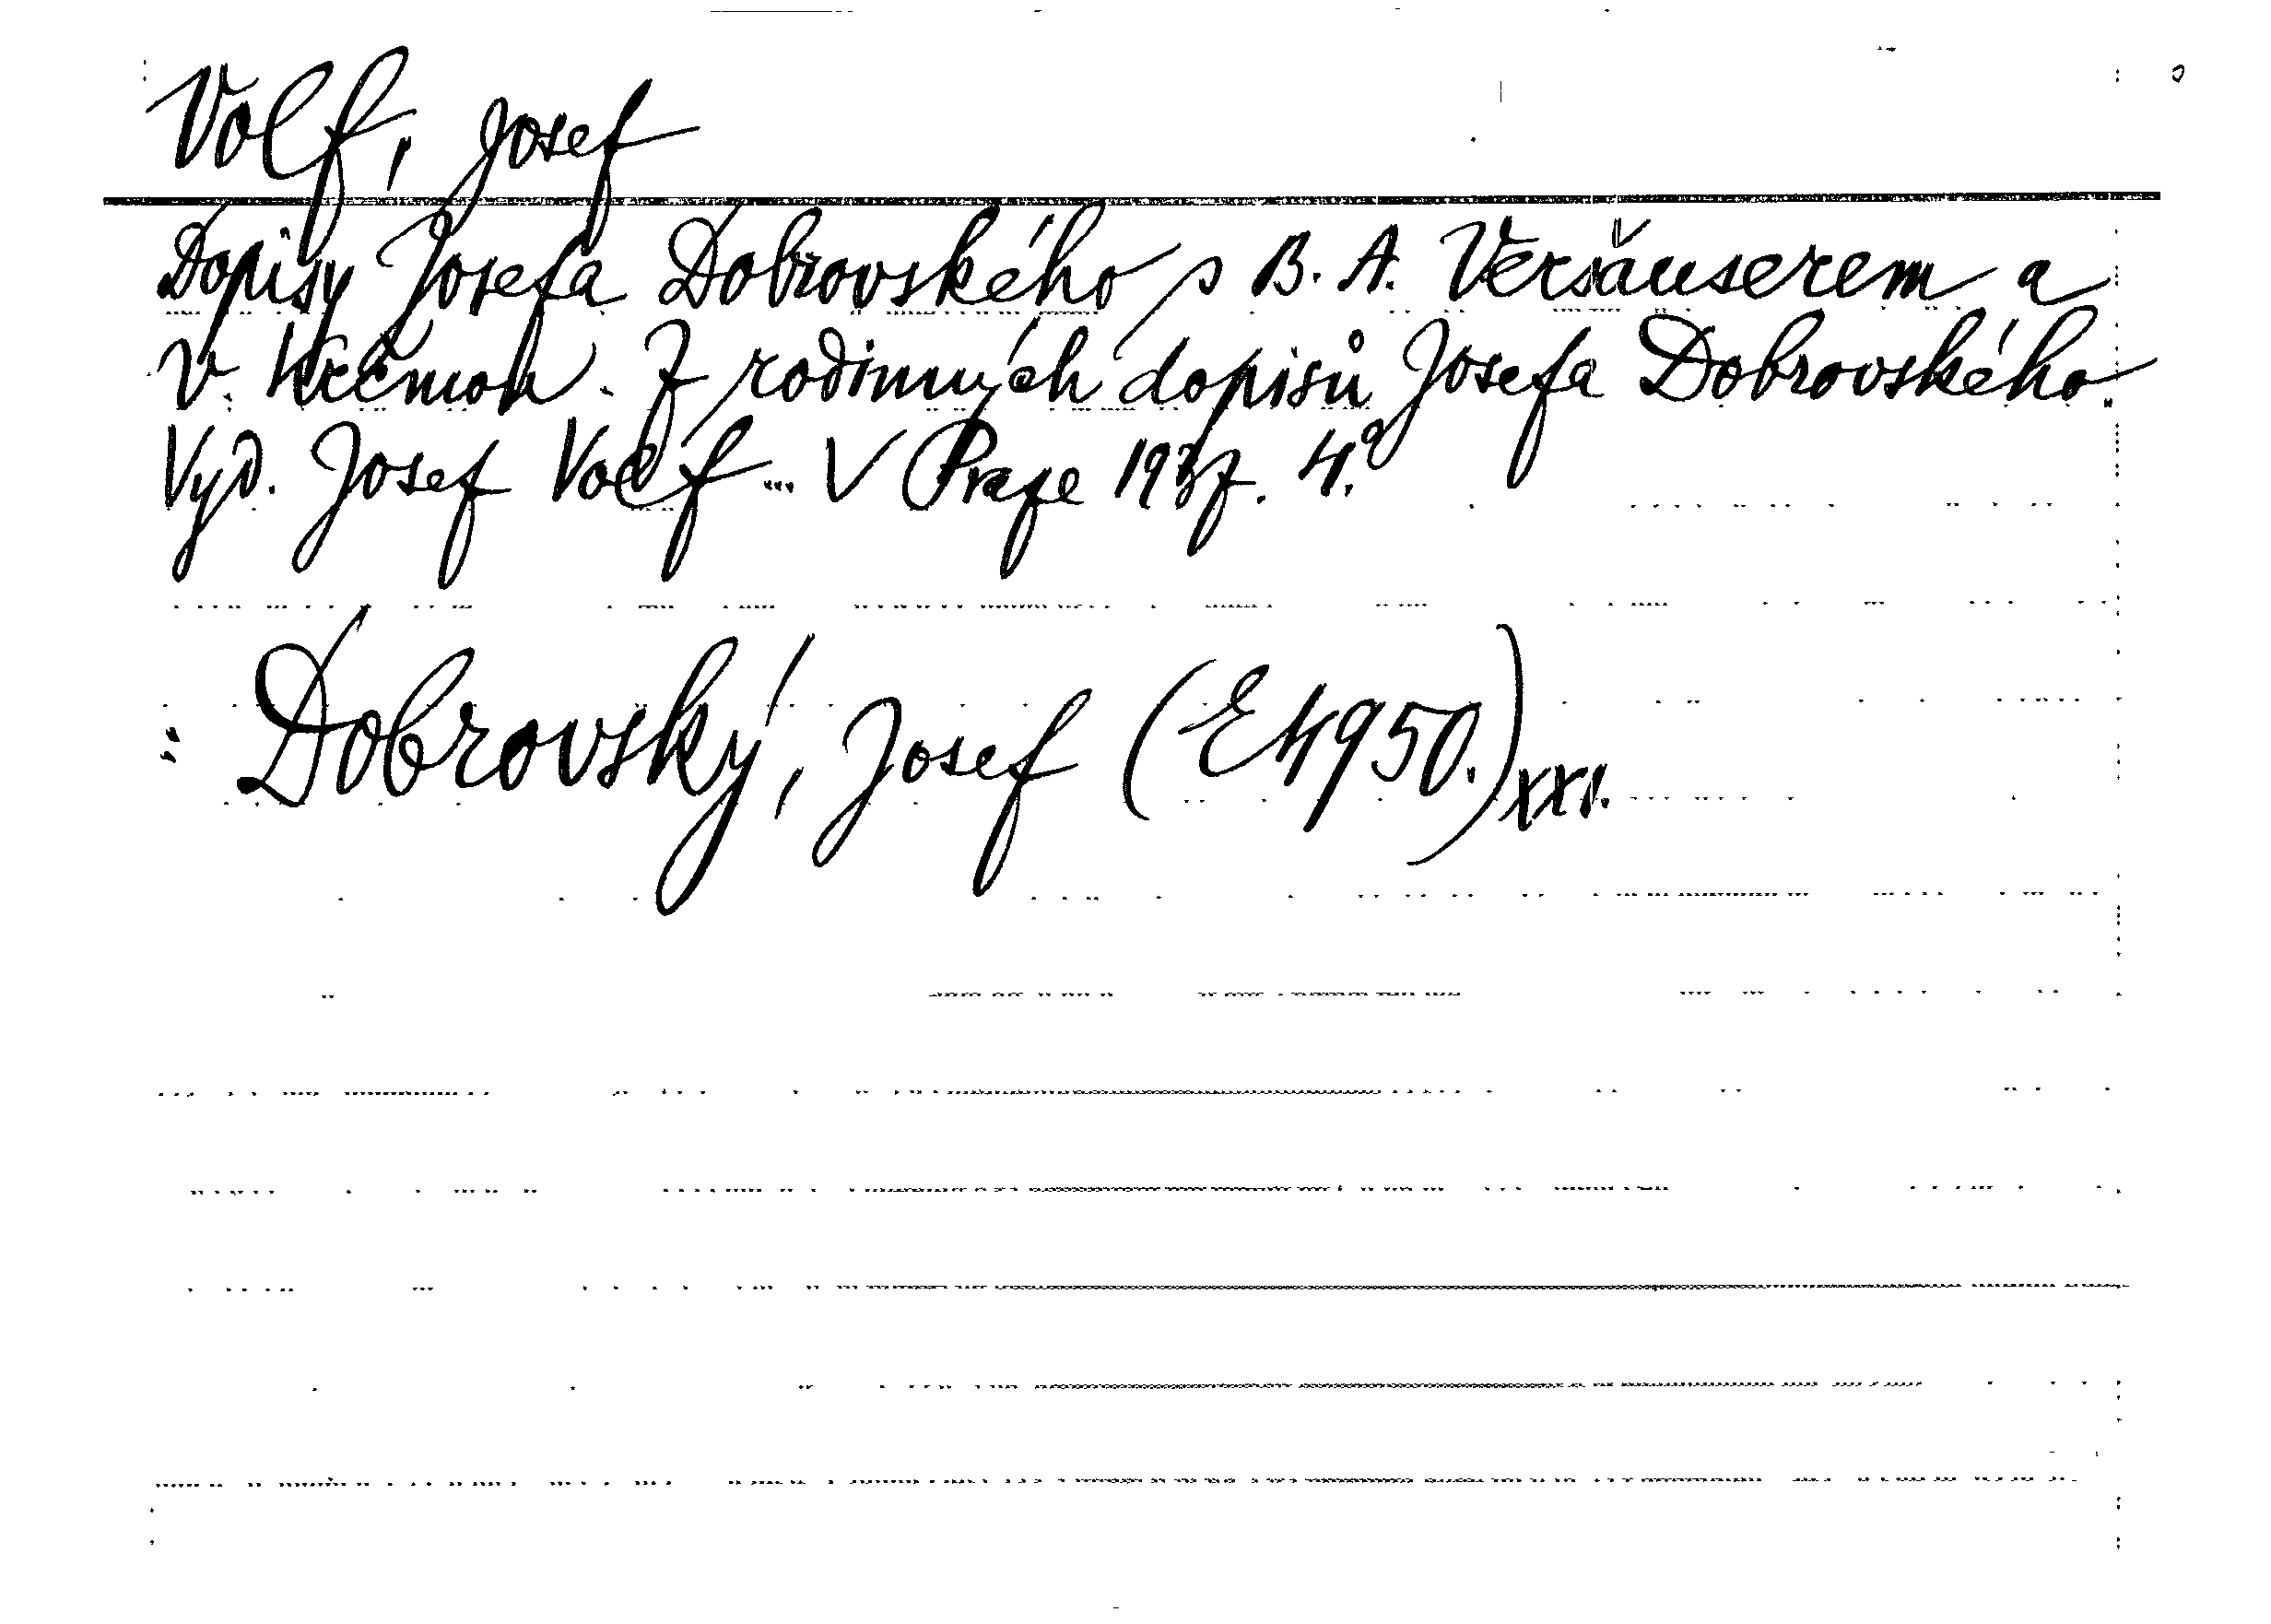 Volf, Josef
Dopisy Josefa Dobrovského s B. A. Versăuserem a
V. Krčmou. Z rodinných dopisů Josefa Dobrovského.
Vyd. Josef Volf ... V Praze 1937. 4.°
: Dobrovský, Josef (E4950.) XXI.